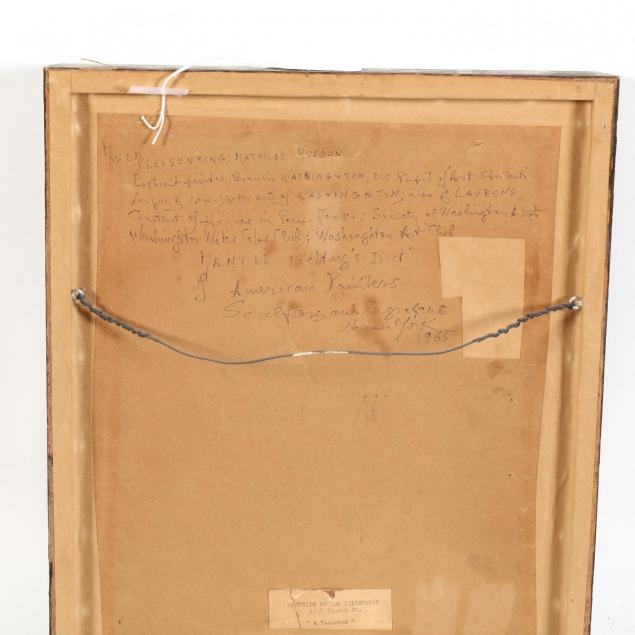 LEISENRING, MATHILDE MUEDEN
Portrait painter Born in WASHINGHTON, D.C. Pupil of "Art Students'
League of New-York and of WASHINGHTON; also of LAURENS,
Constant in Paris Society of Washington Artists
Washington Water Color Club; Washinghton Art Club
MANTLE Fielding's Dict
of American Painters
Sculptors and Engravers
New-York
1965
MATHILDE LEISENRING
" A Tancotor "